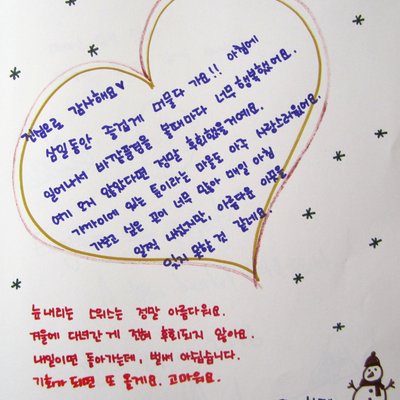 진심으로 감사해요♥
삼일동안 즐겁게 머물다 가요!! 아침에
일어나서 바깥풍경을 볼때마다 너무 행복했어요.
여기 오지 않았다면 정말 후회했을거예요.
가까이에 있는 툰이라는 마을도 아주 사랑스러웠어요.
가보고 싶은 곳이 너무 많아 매일 아침
일찍 나섰지만, 아름다운 이곳을
잊지 못할 것 같네요.
눈내리는 스위스는 정말 아름다워요.
겨울에 다녀간 게 전혀 후회되지 않아요.
내일이면 돌아가는데, 벌써 아쉽습니다.
기회가 되면 또 올게요. 고마워요.